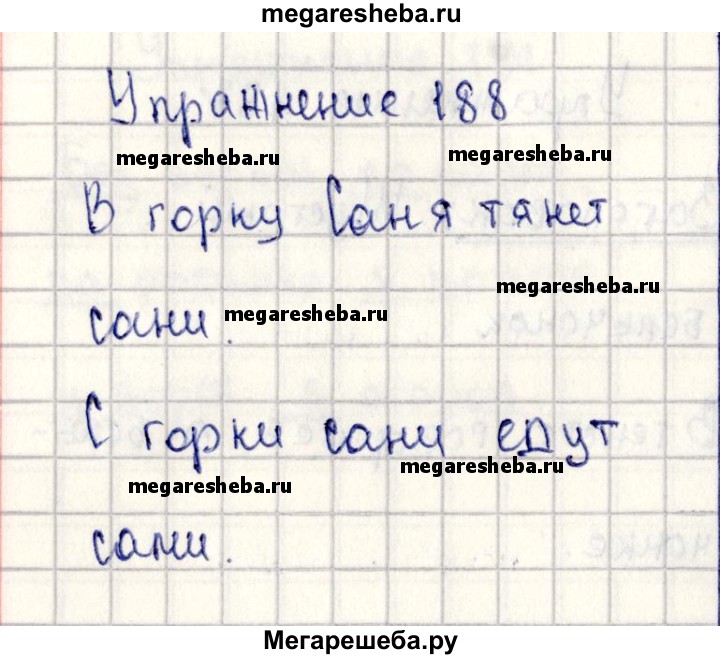 megaresheba.ru
Упражнение 188
megaresheba.ru
megaresheba.ru
В горку Саня тянет
megaresheba.ru
сани.
megaresheba.ru
С горки сани едут
megaresheba.ru
megaresheba.ru
сами.
Мегарешеба.ру